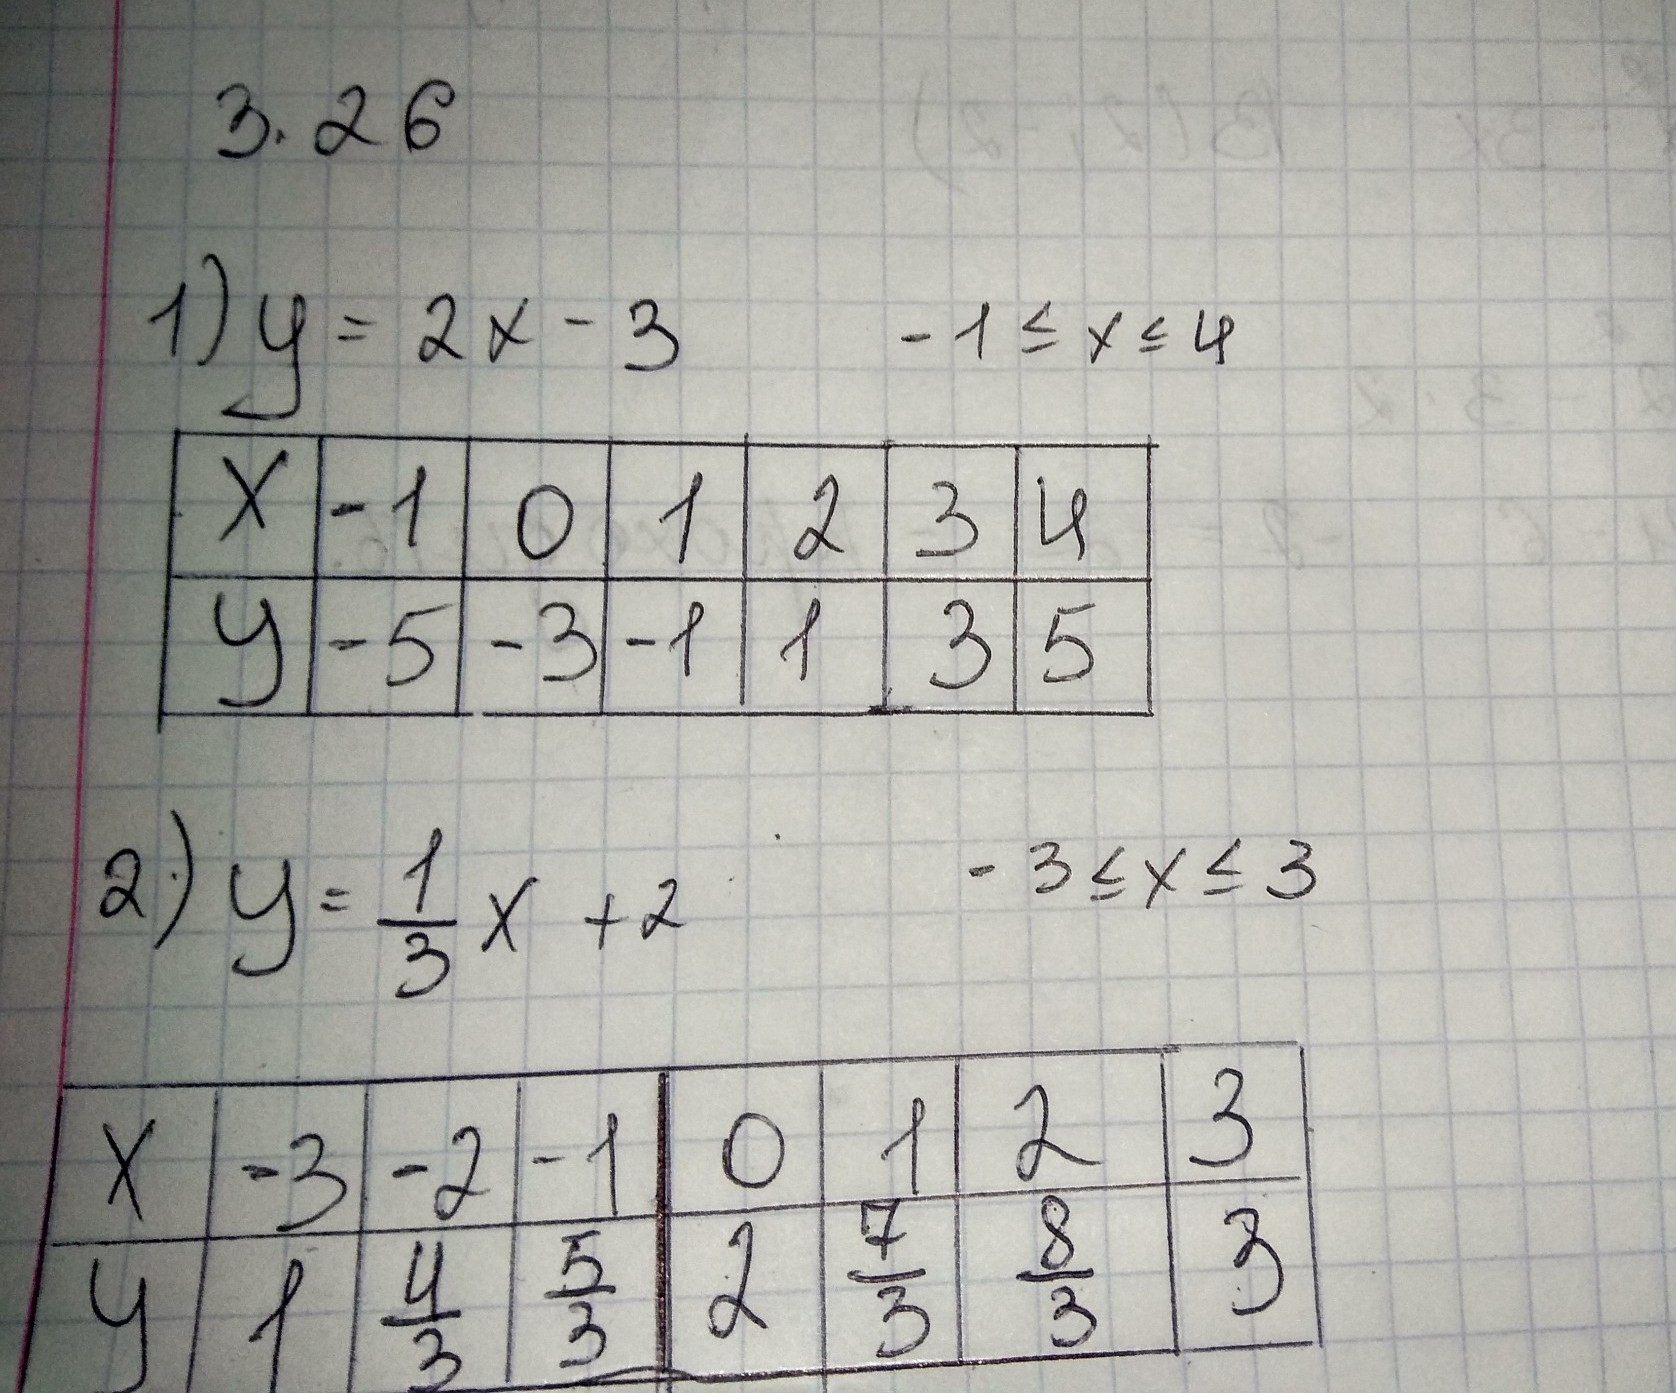 3.26
1) y = 2x - 3 -1 ≤ x ≤ 4
x -1 0 1 2 3 4
y -5 -3 -1 1 3 5
2) y = 1/3 x + 2 -3 ≤ x ≤ 3
x -3 -2 -1 0 1 2 3
y 1 4/3 5/3 2 7/3 8/3 3